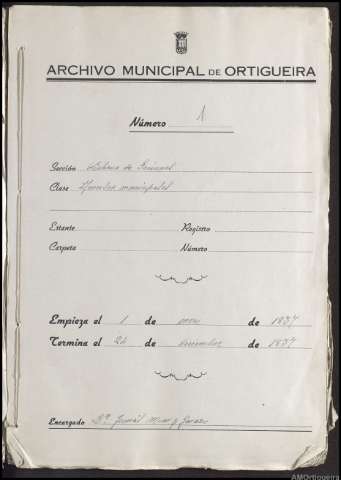 ARCHIVO MUNICIPAL DE ORTIGUEIRA
Número 1
Sección
Clase municipales
Estante Registro
Carpeta Número
Empieza el 1 de enero de 1837
Termina el 24 de diciembre de 1837
Encargado Dn.
AMOrtigueira